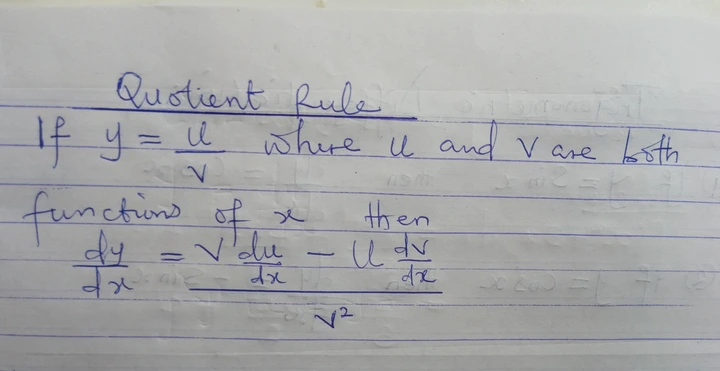 Quotient Rule
If y = u/v where u and v are both
functions of x then
dy/dx = (v du/dx - u dv/dx)/v²